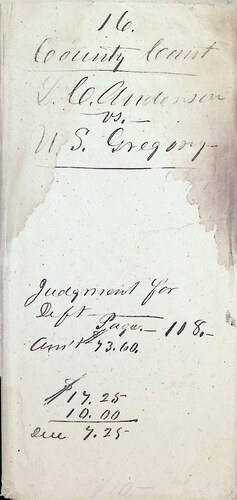 16.
County Court
L. C. Anderson
vs.
S. Gregory
Judgment for
Deft - Page - 118.
Am't $73.60.
$17.25
10.00
Due 7.25